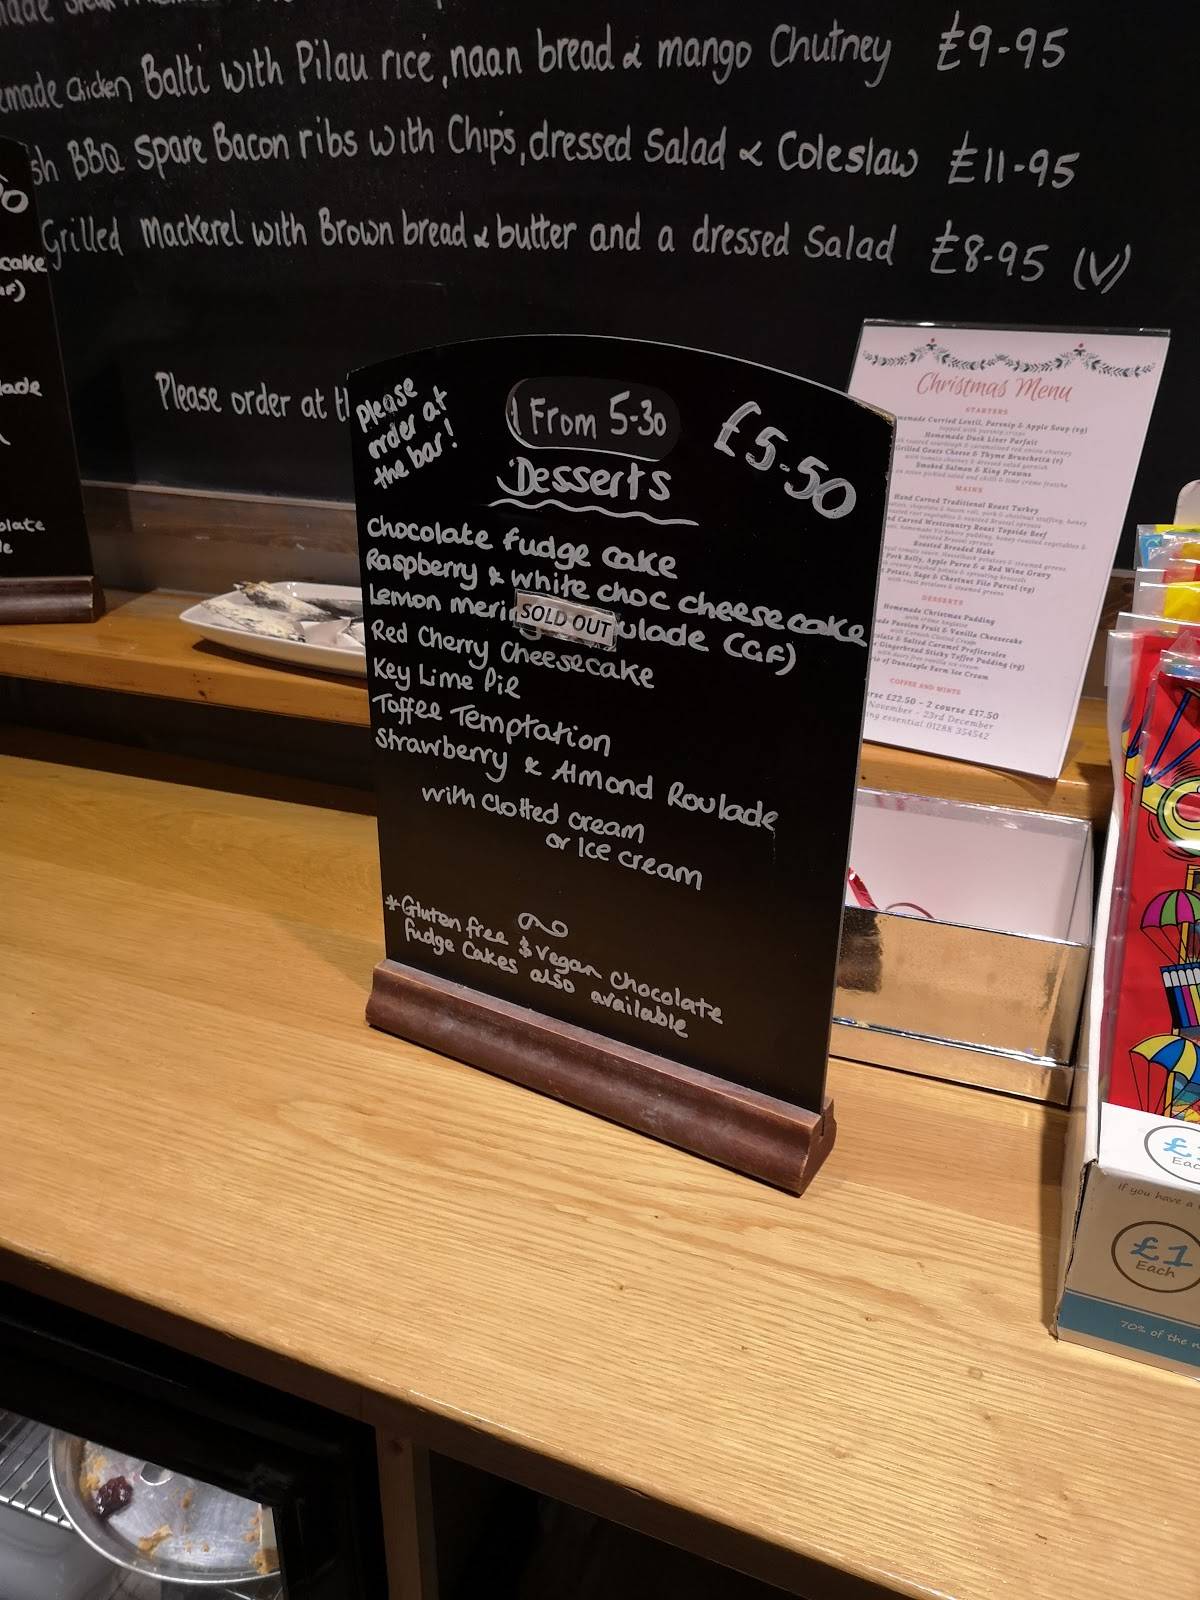 Chicken Balti with Pilau rice, naan bread & mango Chutney £9-95
BBQ Spare Bacon ribs with Chips, dressed Salad & Coleslaw £11-95
Grilled Mackerel with Brown bread & butter and a dressed Salad £8-95 (V)
Please order at
cake
Please
order at
the bar!
From 5-30
£5-50
Desserts
Chocolate fudge cake
Raspberry & white choc cheesecake
Lemon (GF)
SOLD OUT
Red Cherry Cheesecake
Key Lime Pie
Toffee Temptation
Strawberry & Almond Roulade
with clotted cream
or Ice cream
*Gluten free $ Vegan chocolate
fudge Cakes also available
Christmas Menu
STARTERS
Curried Lentil, Parsnip & Apple Soup (vg)
Homemade Duck Liver Parfait
Grilled Goats Cheese & Thyme Bruschetta (v)
Smoked Salmon & King Prawns
MAINS
Hand Carved Traditional Roast Turkey
Carved Westcountry Roast Topside Beef
Roasted Breaded Hake
Pork Belly, Apple Puree & a Red Wine Gravy
Potato, Sage & Chestnut Filo Parcel (vg)
DESSERTS
Homemade Christmas Pudding
Passion Fruit & Vanilla Cheesecake
& Salted Caramel Profiteroles
Gingerbread Sticky Toffee Pudding (vg)
of Dunstaple Farm Ice Cream
COFFEE AND MINTS
£22.50 - 2 course £17.50
November - 23rd December
essential 01288 354542
Each
If you have a
£1
Each
70% of the